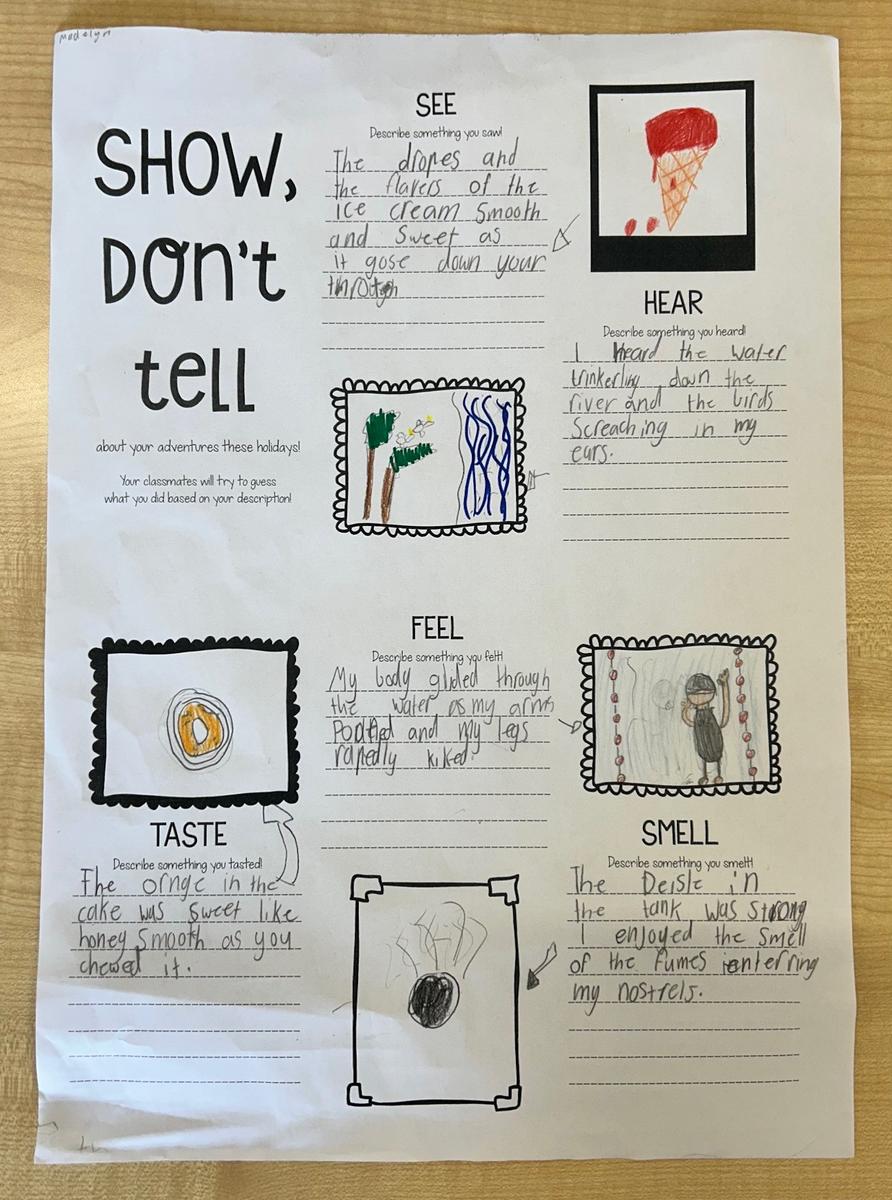 Madelyn
SHOW,
DON't
tell
about your adventures these holidays!
Your classmates will try to guess
what you did based on your description!
SEE
Describe something you saw!
The dropes and
the flavers of the
ice cream smooth
and sweet as
it gose down your
HEAR
Describe something you heard!
I heard the water
trinkerling down the
river and the birds
Screaching in my
ears.
FEEL
Describe something you felt!
My body glided through
the water as my arms
and my legs
rapedly kiked.
TASTE
Describe something you tasted!
The ornge in the
cake was sweet like
honey smooth as you
chewed it.
SMELL
Describe something you smelt!
The Deisle in
the tank was strong
I enjoyed the smell
of the fumes enterring
my nostrels.